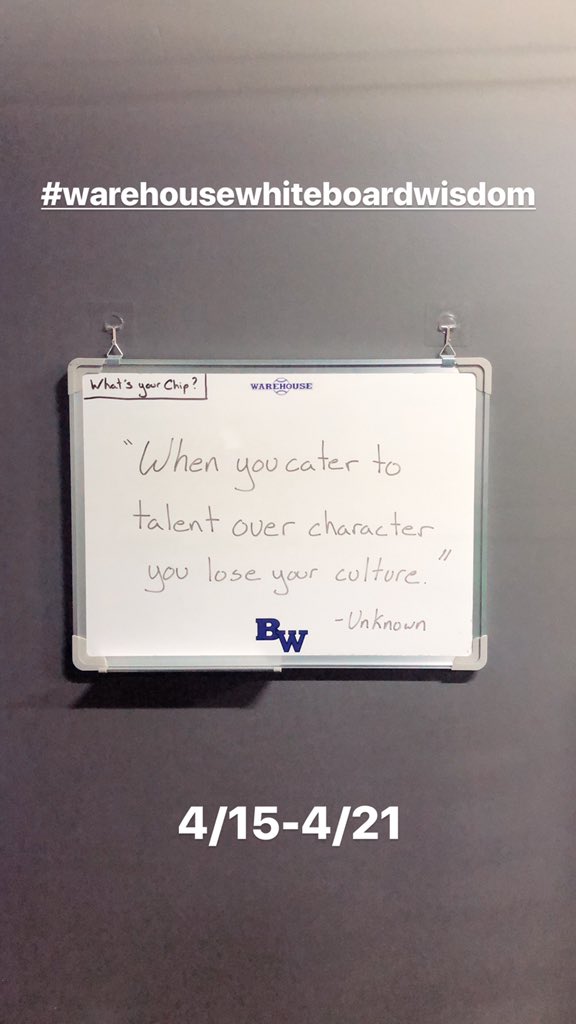 #warehousewhiteboardwisdom
What's your Chip?
WAREHOUSE
"When you cater to
talent over character
you lose your culture."
-Unknown
BW
4/15-4/21